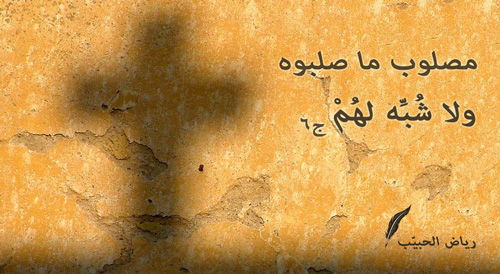 مصلوب ما صلبوه
ولا شُبِّه لهُمْ ج٦
رياض الحبيّب